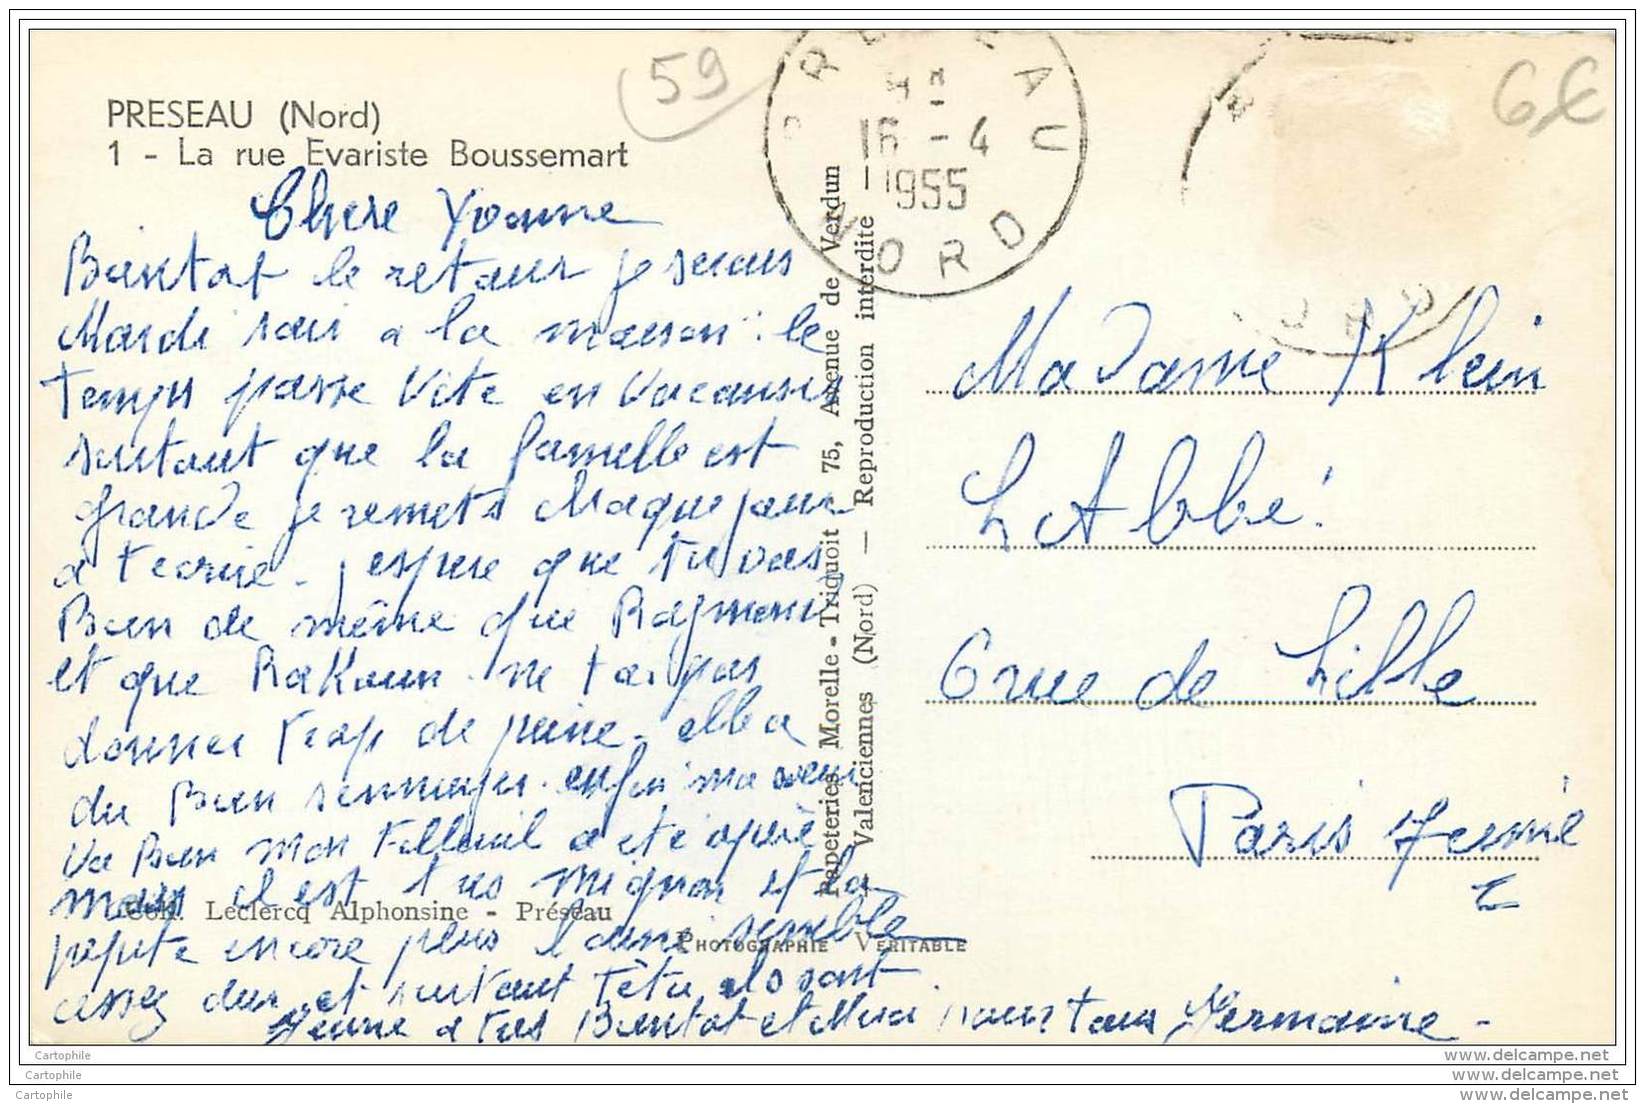 59
6€
PRESEAU (Nord)
1 - La rue Evariste Boussemart
PRESEAU
16 - 4
1955
NORD
Chere Yvonne
Bientot le retour je serais
Mardi soir a la maison : le
temps passe vite en vacances
surtout que la famille est
grande je remets chaque jour
a tecrire - j espere que tu vas
Bien de même que Raymond
et que ne ta pas
donner trop de peine - elle a
du Bien sennuyer. enfin ma soeur
va Bien mon Filleuil a été opéré
mais il est très mignon et la
petite encore plus l ainé semble
assez dur et surtout Tètu ils sont
Jeune a tres Bientot et Merci pour tous Germaine -
Madame Klein
L Abbé
6 rue de Lille
Paris 7eme
Papeteries Morelle - Triquoit 75, Avenue de Verdun
Valenciennes (Nord) — Reproduction interdite
Coll. Leclercq Alphonsine - Préseau
PHOTOGRAPHIE VERITABLE
Cartophile
Cartophile
Cartophile
www.delcampe.net
www.delcampe.net
www.delcampe.net